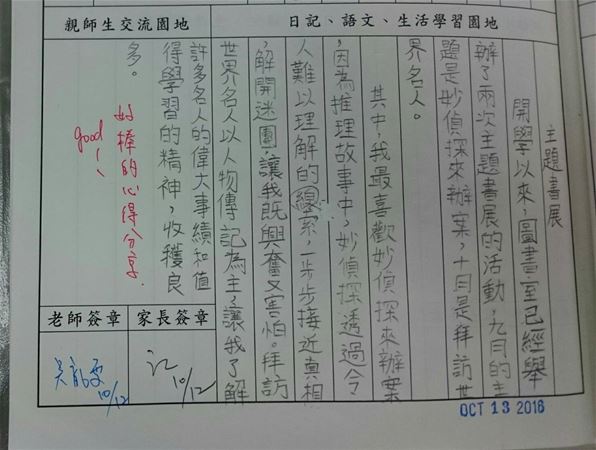 日記、語文、生活學習園地
親師生交流園地
主題書展
開學以來，圖書室已經舉
辦了兩次主題書展的活動，九月的主
題是妙偵探來辦案，十月是拜訪世
界名人。
其中，我最喜歡妙偵探來辦案
，因為推理故事中，妙偵探透過令
人難以理解的線索，一步步接近真相
，解開迷團，讓我既興奮又害怕。拜訪
世界名人以人物傳記為主，讓我了解
許多名人的偉大事績和值
得學習的精神，收穫良
多。
好棒的心得分享.
good!
家長簽章
老師簽章
江
10/12
10/12
OCT 13 2016